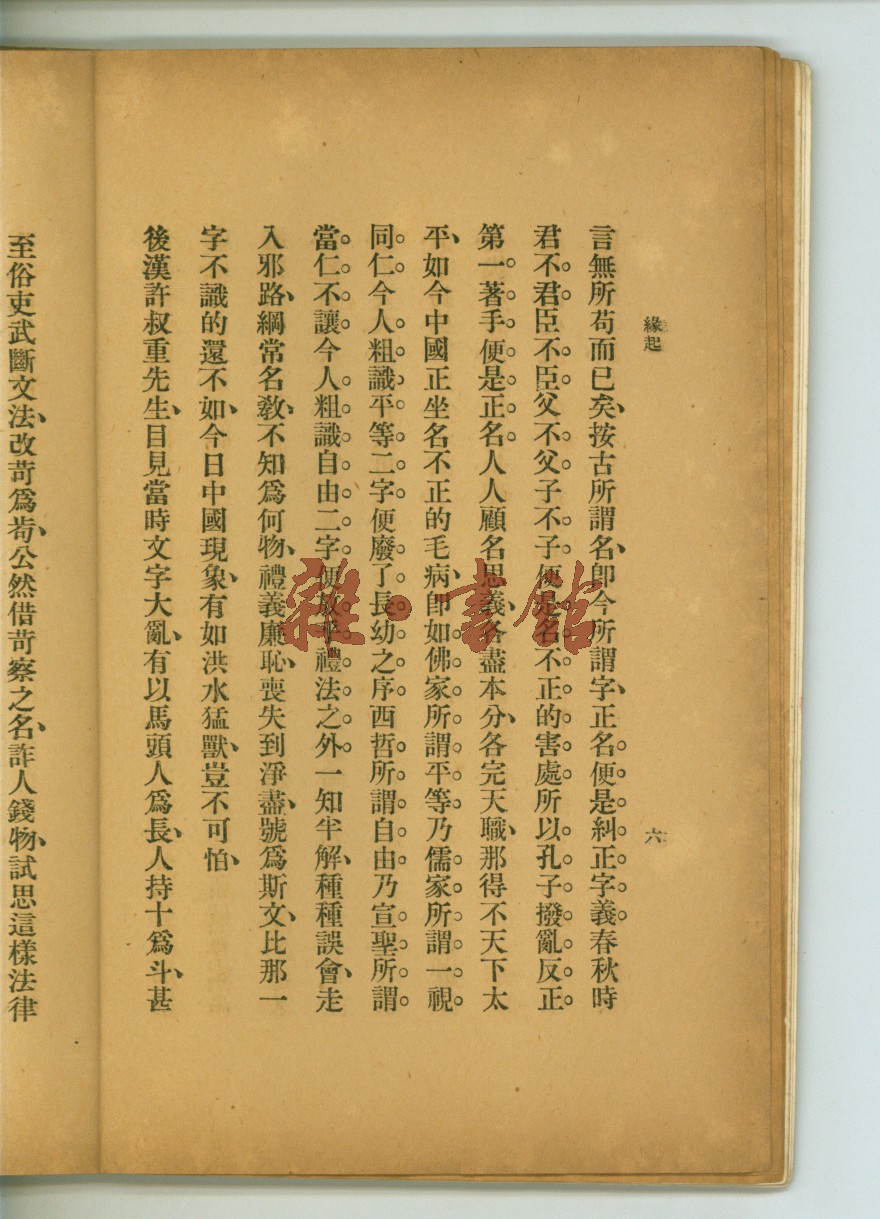 緣起
六
言無所苟而已矣、按古所謂名、卽今所謂字、正名便是糾正字義春秋時
君不君臣不臣父不父子不子便是名不正的害處所以孔子撥亂反正
第一著手便是正名人人顧名思義、各盡本分、各完天職、那得不天下太
平、如今中國正坐名不正的毛病、卽如佛家所謂平等乃儒家所謂一視
同仁今人粗識平等二字便廢了長幼之序西哲所謂自由乃宣聖所謂
當仁不讓今人粗識自由二字便放乎禮法之外一知半解、種種誤會、走
入邪路、綱常名敎、不知爲何物、禮義廉恥、喪失到淨盡、號爲斯文、比那一
字不識的還不如、今日中國現象、有如洪水猛獸、豈不可怕、
後漢許叔重先生、目見當時文字大亂、有以馬頭人爲長、人持十爲斗、甚
至俗吏武斷文法、改苛爲苟、公然借苛察之名、詐人錢物、試思這樣法律
雜·書館